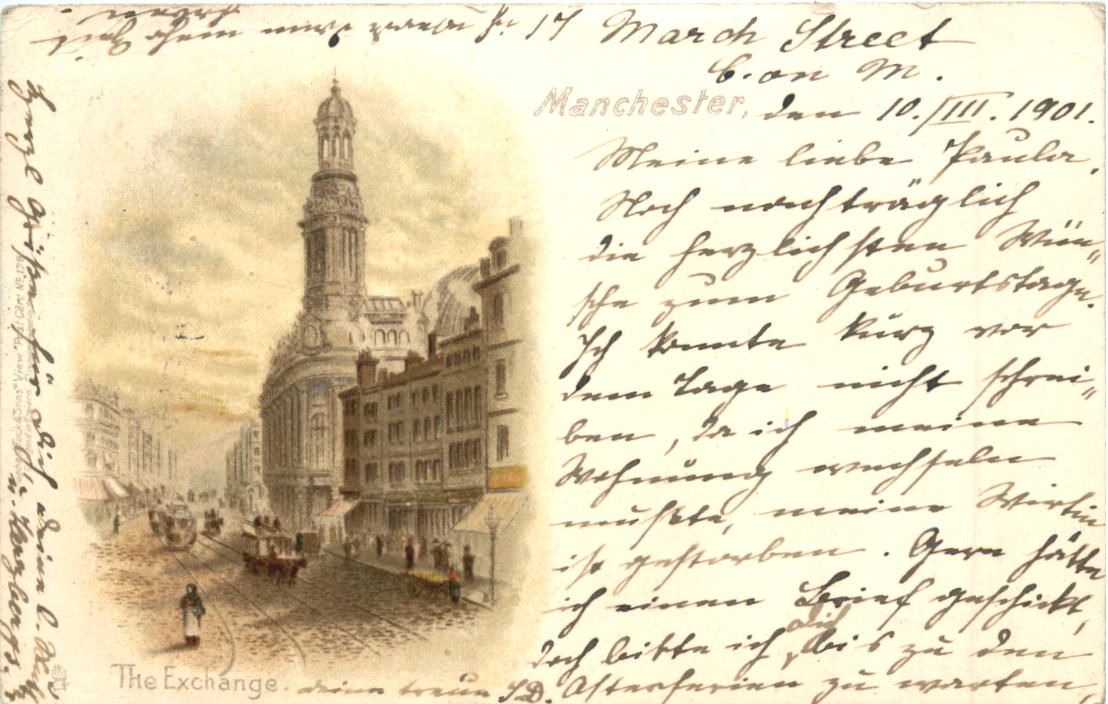 17 March Street
C. on M.
Manchester, den 10./III. 1901.
Meine liebe Paula.
Noch nachträglich
die herzlichsten Wün„
sche zum Geburtstage.
Ich konnte kurz vor
dem Tage nicht schrei„
ben, da ich meine
Wohnung wechseln
mußte, meine Wirtin
ist gestorben. Gern hätte
ich einen Brief geschickt,
doch bitte ich dich, bis zu den
Osterferien zu warten,
Herzl. Grüße für Dich, Deine l.
The Exchange.
deine treue